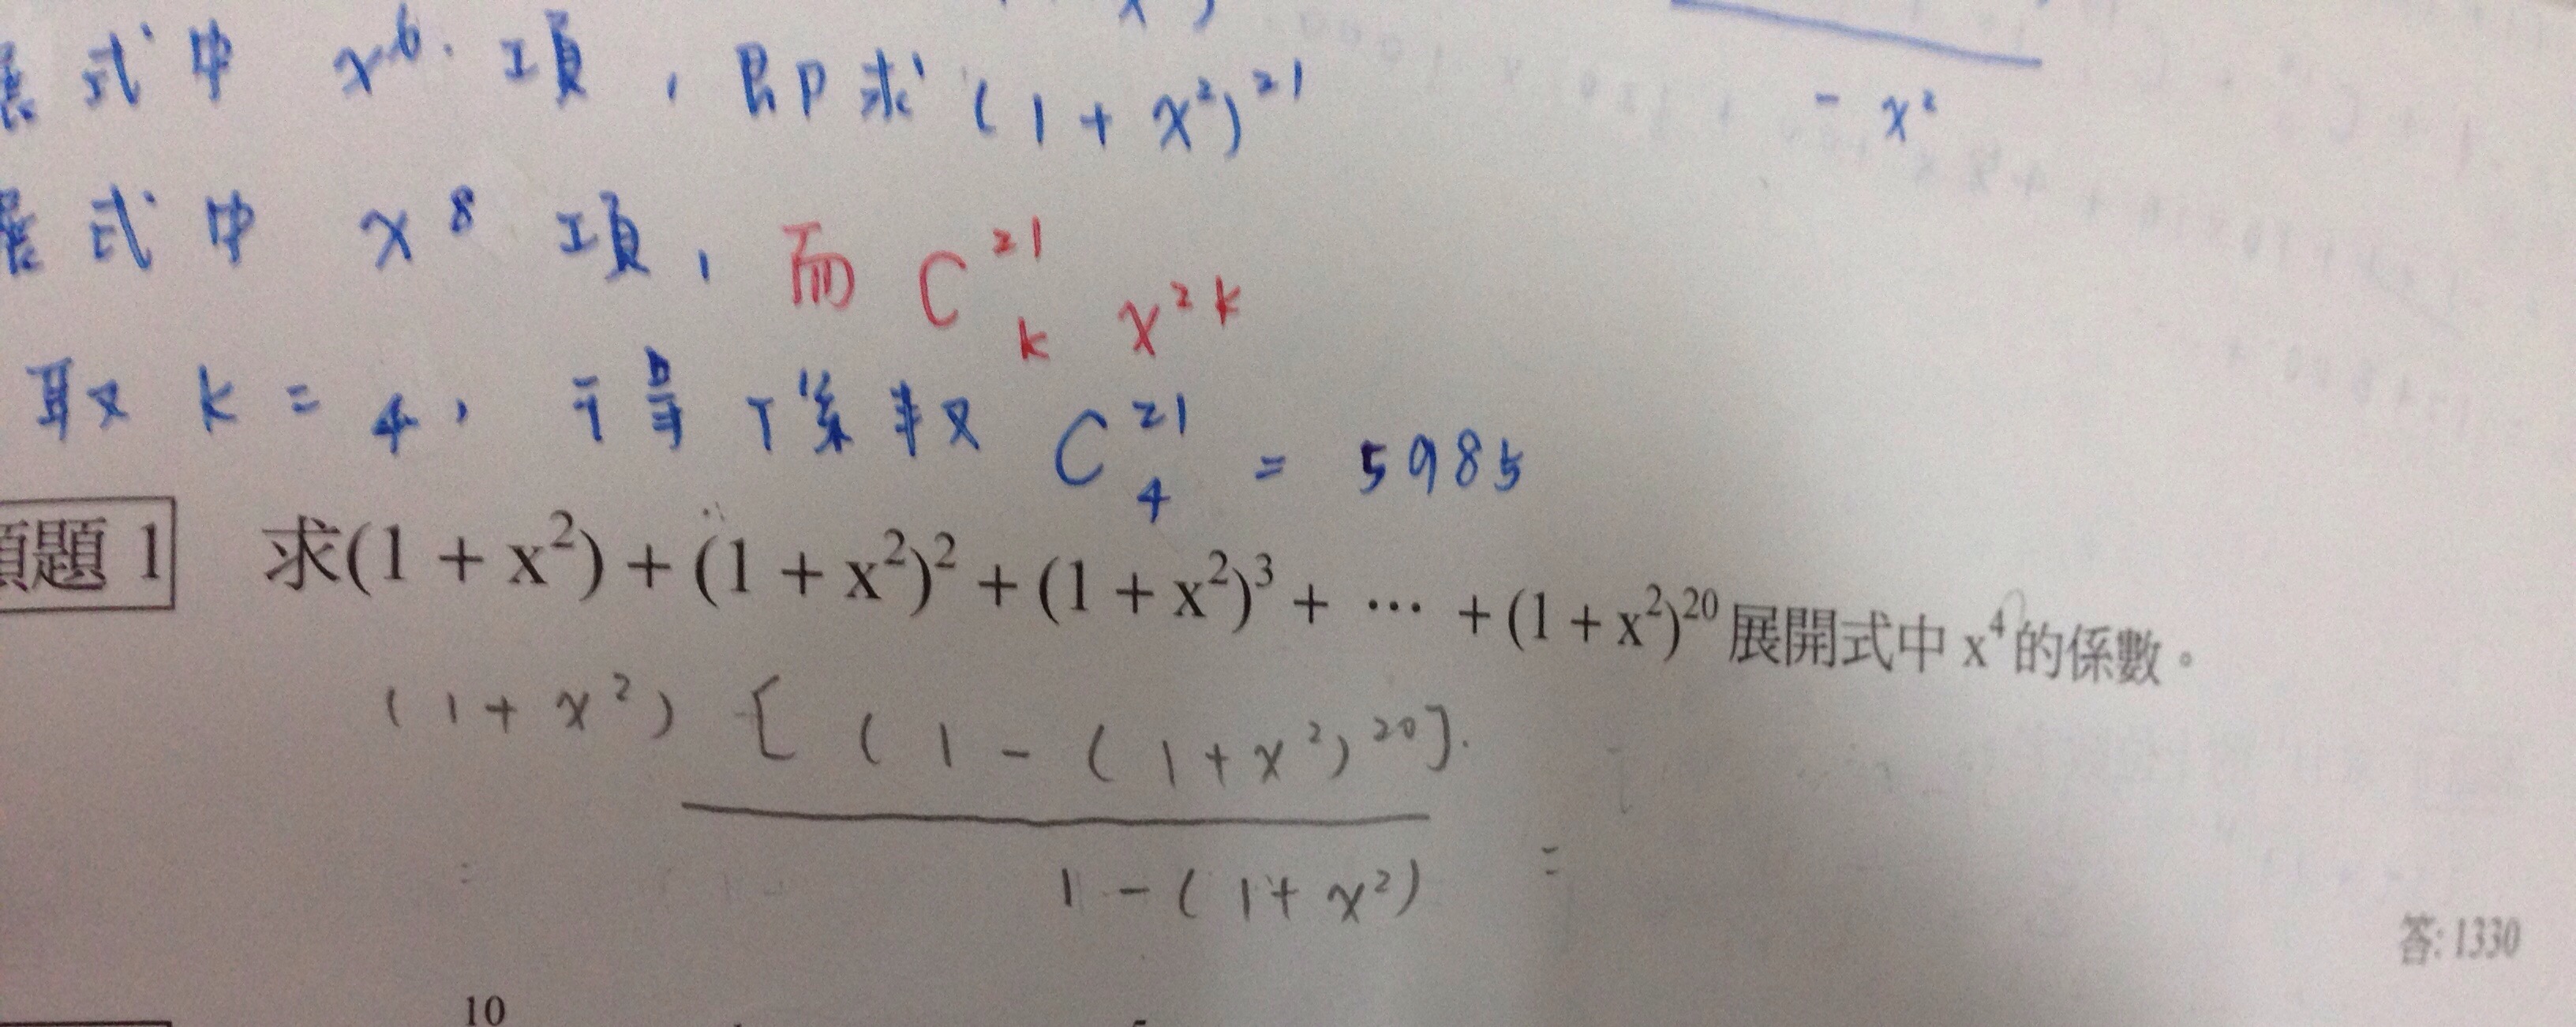 展式中 x⁶ 項，即求 (1 + x²)²¹
- x²
展式中 x⁸ 項，而 C²¹ₖ x²ᵏ
取 k = 4，可得係數 C²¹₄ = 5985
類題 1 求(1 + x²) + (1 + x²)² + (1 + x²)³ + ⋯ + (1 + x²)²⁰展開式中 x⁴的係數。
(1 + x²) [ ( 1 - ( 1 + x² )²⁰].
1 - ( 1 + x²) =
答: 1330
10